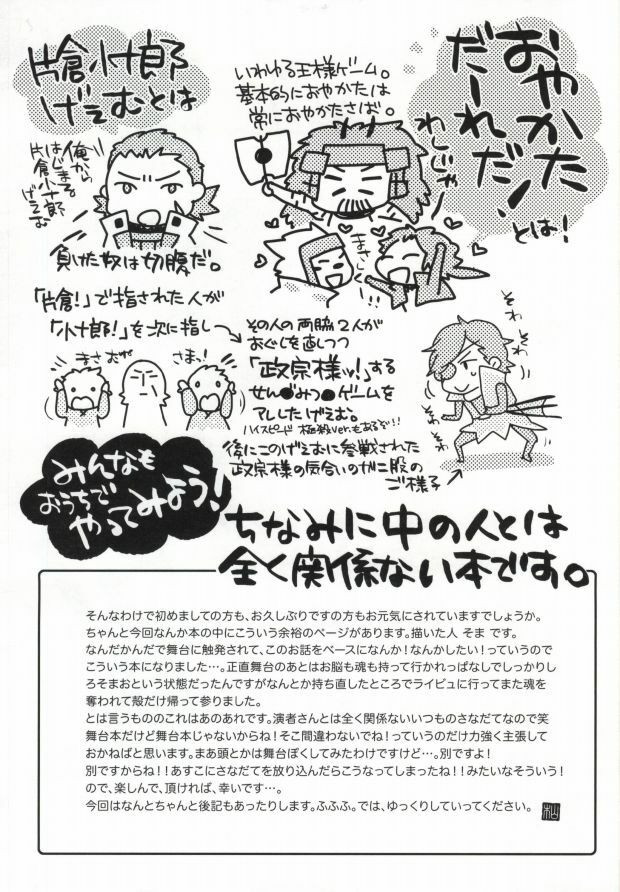 おやかた
だーれだ！
とは！
いわゆる王様ゲーム。
基本的におやかたは
常におやかたさば。
わしじゃー
まさしく!!
片倉小十郎
げぇむとは
俺から
はじまる
片倉小十郎
げぇむ
負けた奴は切腹だ。
「片倉！」で指された人が
「小十郎！」を次に指し
その人の両脇2人が
おぐしを直しつつ
「政宗様ッ！」する
せん●みつ●ゲームを
アレしたげえむ。
ハイスピード 極殺ver.もあるぞ!!
まさむね
さまっ！
そわ
そわ
そわ
そわ
後にこのげえむに参戦された
政宗様の気合いのガニ股の
ご様子
みんなも
おうちで
やってみよう！
ちなみに中の人とは
全く関係ない本です。
そんなわけで初めましての方も、お久しぶりですの方もお元気にされていますでしょうか。
ちゃんと今回なんか本の中にこういう余裕のページがあります。描いた人 そま です。
なんだかんだで舞台に触発されて、このお話をベースになんか！なんかしたい！っていうので
こういう本になりました…。正直舞台のあとはお脳も魂も持って行かれっぱなしでしっかりし
ろそまおという状態だったんですがなんとか持ち直したところでライビュに行ってまた魂を
奪われて殻だけ帰って参りました。
とは言うもののこれはあのあれです。演者さんとは全く関係ないいつものさなだてなので笑
舞台本だけど舞台本じゃないからね！そこ間違わないでね！っていうのだけ力強く主張して
おかねばと思います。まあ頭とかは舞台ぽくしてみたわけですけど…。別ですよ！
別ですからね！！あすこにさなだてを放り込んだらこうなってしまったね！！みたいなそういう！
ので、楽しんで、頂ければ、幸いです…。
今回はなんとちゃんと後記もあったりします。ふふふ。では、ゆっくりしていってください。